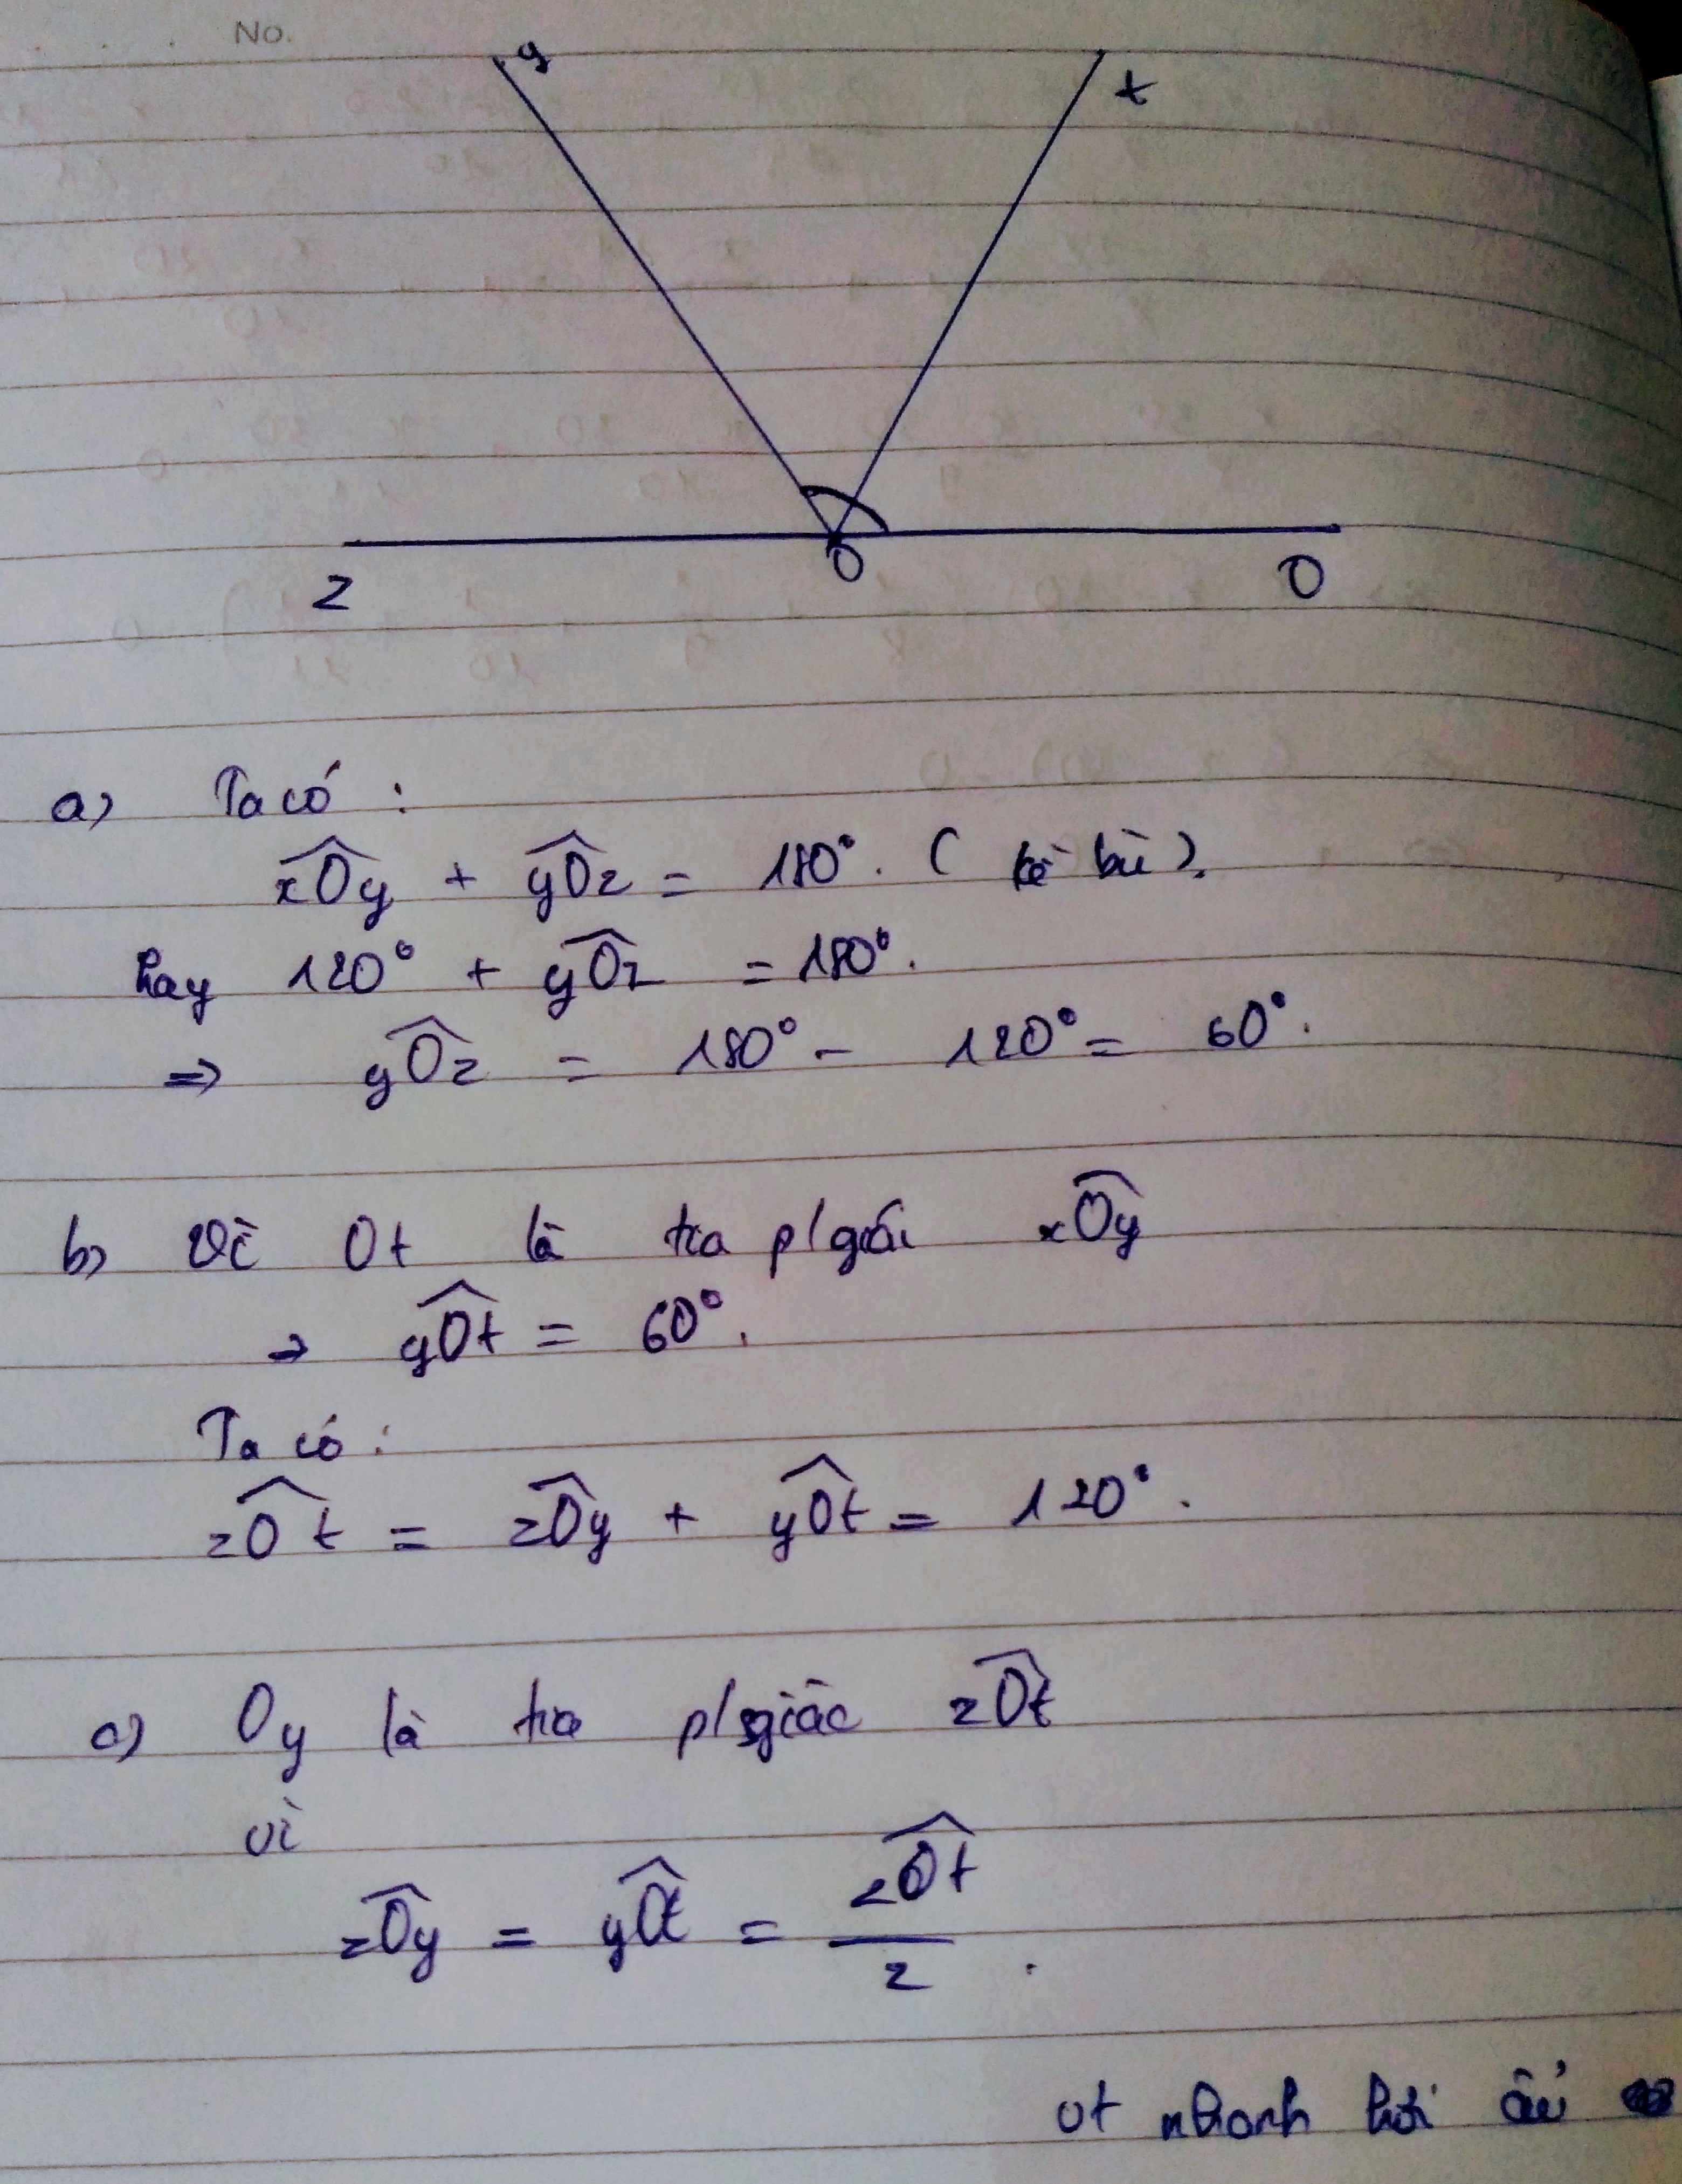 No.
y
t
z
O
O
a) Ta có :
xOy + yOz = 180°. ( kề bù ).
hay 120° + yOz = 180°.
=> yOz = 180° - 120° = 60°.
b) Vì Ot là tia p/giác xOy
→ yOt = 60°.
Ta có :
zOt = zOy + yOt = 120°.
c) Oy là tia p/giác zOt
vì
zOy = yOt = zOt / 2 .
vt nhanh hơi ẩu